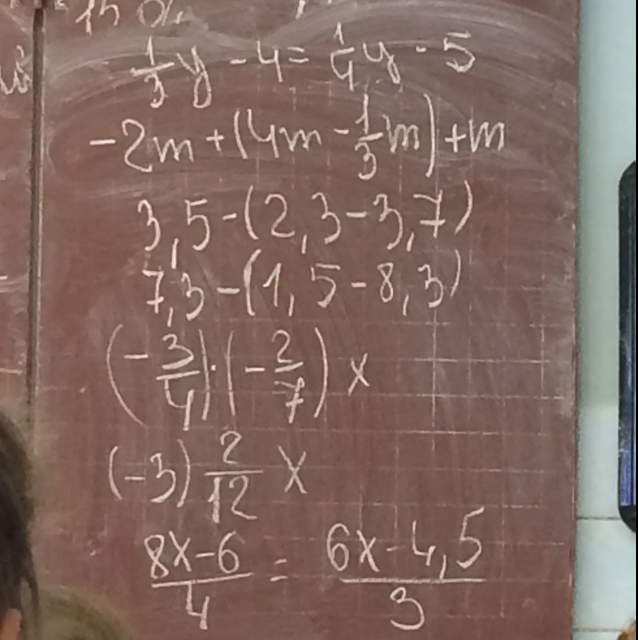 15%
1/3 y - 4 = 1/4 y - 5
-2m + (4m - 1/3 m) + m
3,5 - (2,3 - 3,7)
7,3 - (1,5 - 8,3)
(- 3/4) · (- 2/7) x
(-3) 2/12 x
8x-6/4 = 6x-4,5/3